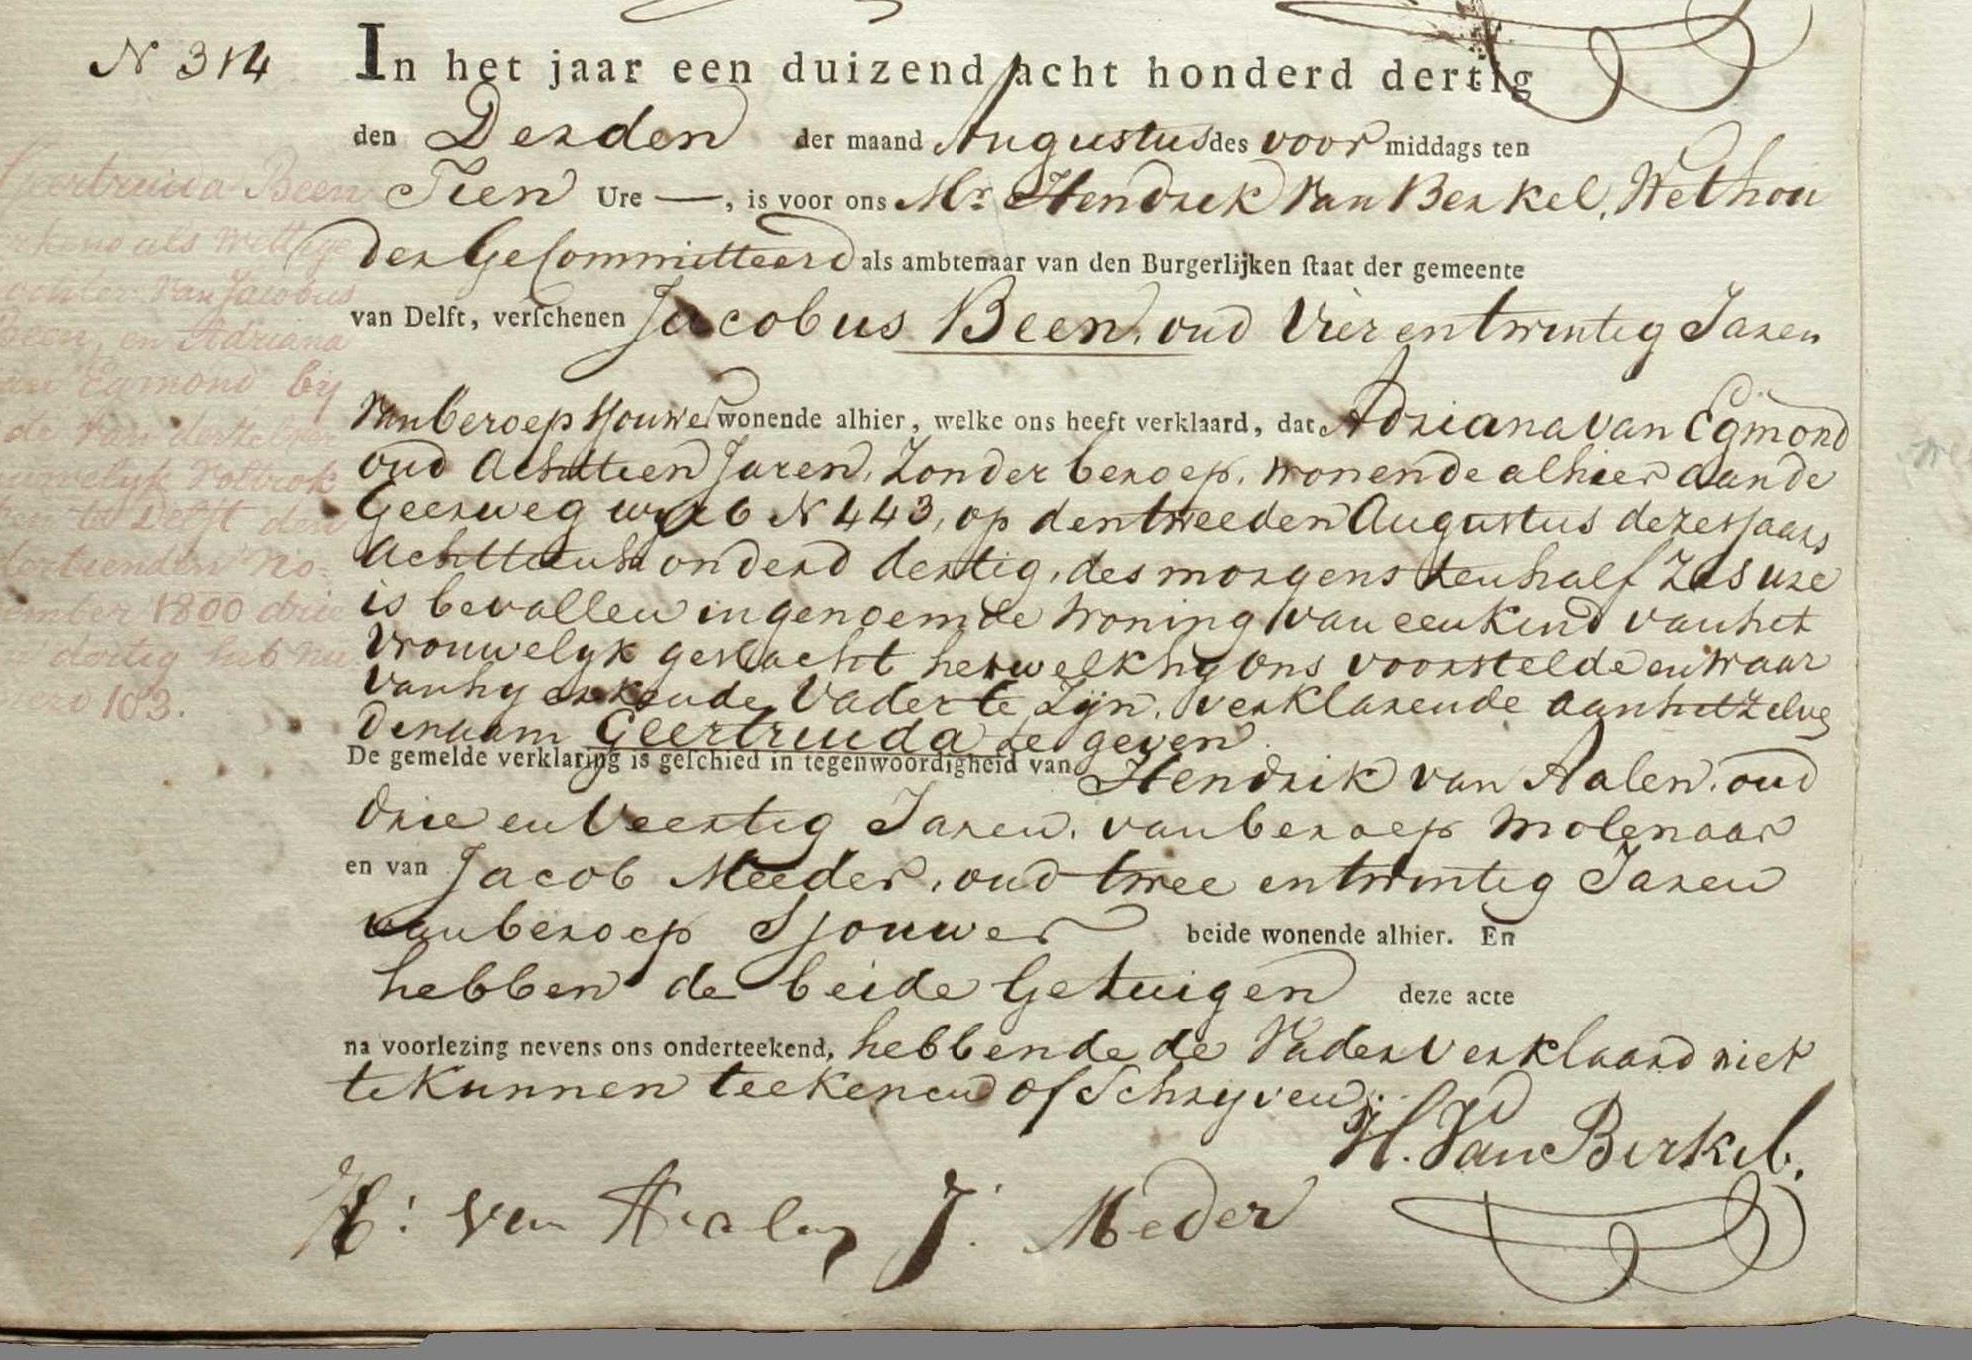 N 314
In het jaar een duizend acht honderd dertig
den Derden der maand Augustus des voor middags ten
Tien Ure —, is voor ons Mr Hendrik Van Berkel, Wethou
der Gecommitteerd als ambtenaar van den Burgerlijken staat der gemeente
van Delft, verschenen Jacobus Been, oud Vier en twintig Jaren
van beroep Sjouwer wonende alhier, welke ons heeft verklaard, dat Adriana van Egmond
oud achttien Jaren, zonder beroep, wonende alhier aan de
Geerweg wyk 6 N 443, op den tweeden Augustus dezes jaars
achttienhonderd dertig, des morgens ten half zes ure
is bevallen in genoemde woning van een kind van het
vrouwelyk geslacht hetwelk hy ons voorstelde en waar
van hy erkende Vader te zyn, verklarende aan hetzelve
de naam Geertruida te geven
De gemelde verklaring is geschied in tegenwoordigheid van Hendrik van Aalen, oud
drie en Veertig Jaren, van beroep molenaar
en van Jacob Meeder, oud twee en twintig Jaren
van beroep Sjouwer beide wonende alhier. En
hebben de beide Getuigen deze acte
na voorlezing nevens ons onderteekend, hebbende de Vader verklaard niet
te kunnen teekenen of Schryven.
H. Van Berkel.
H: van Aalen J. Meder
Geertruida Been
als wettige
van Jacobus
Been, en Adriana
van Egmond by
de van derke
huwelyk voltrok
te Delft den
dertienden No-
vember 1800 drie
dertig sub nu
mero 103.